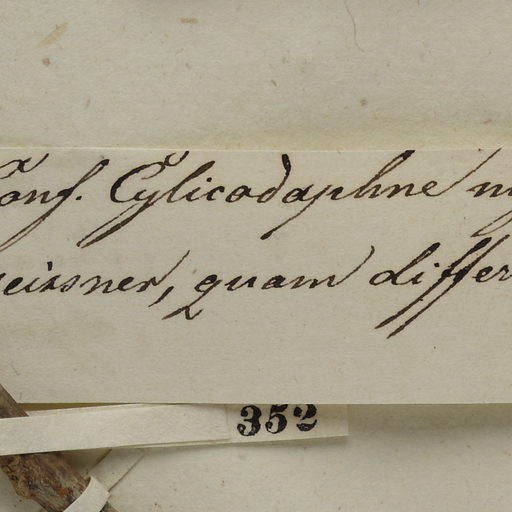 Conf. Cylicodaphne
Meissner, quam differ
352